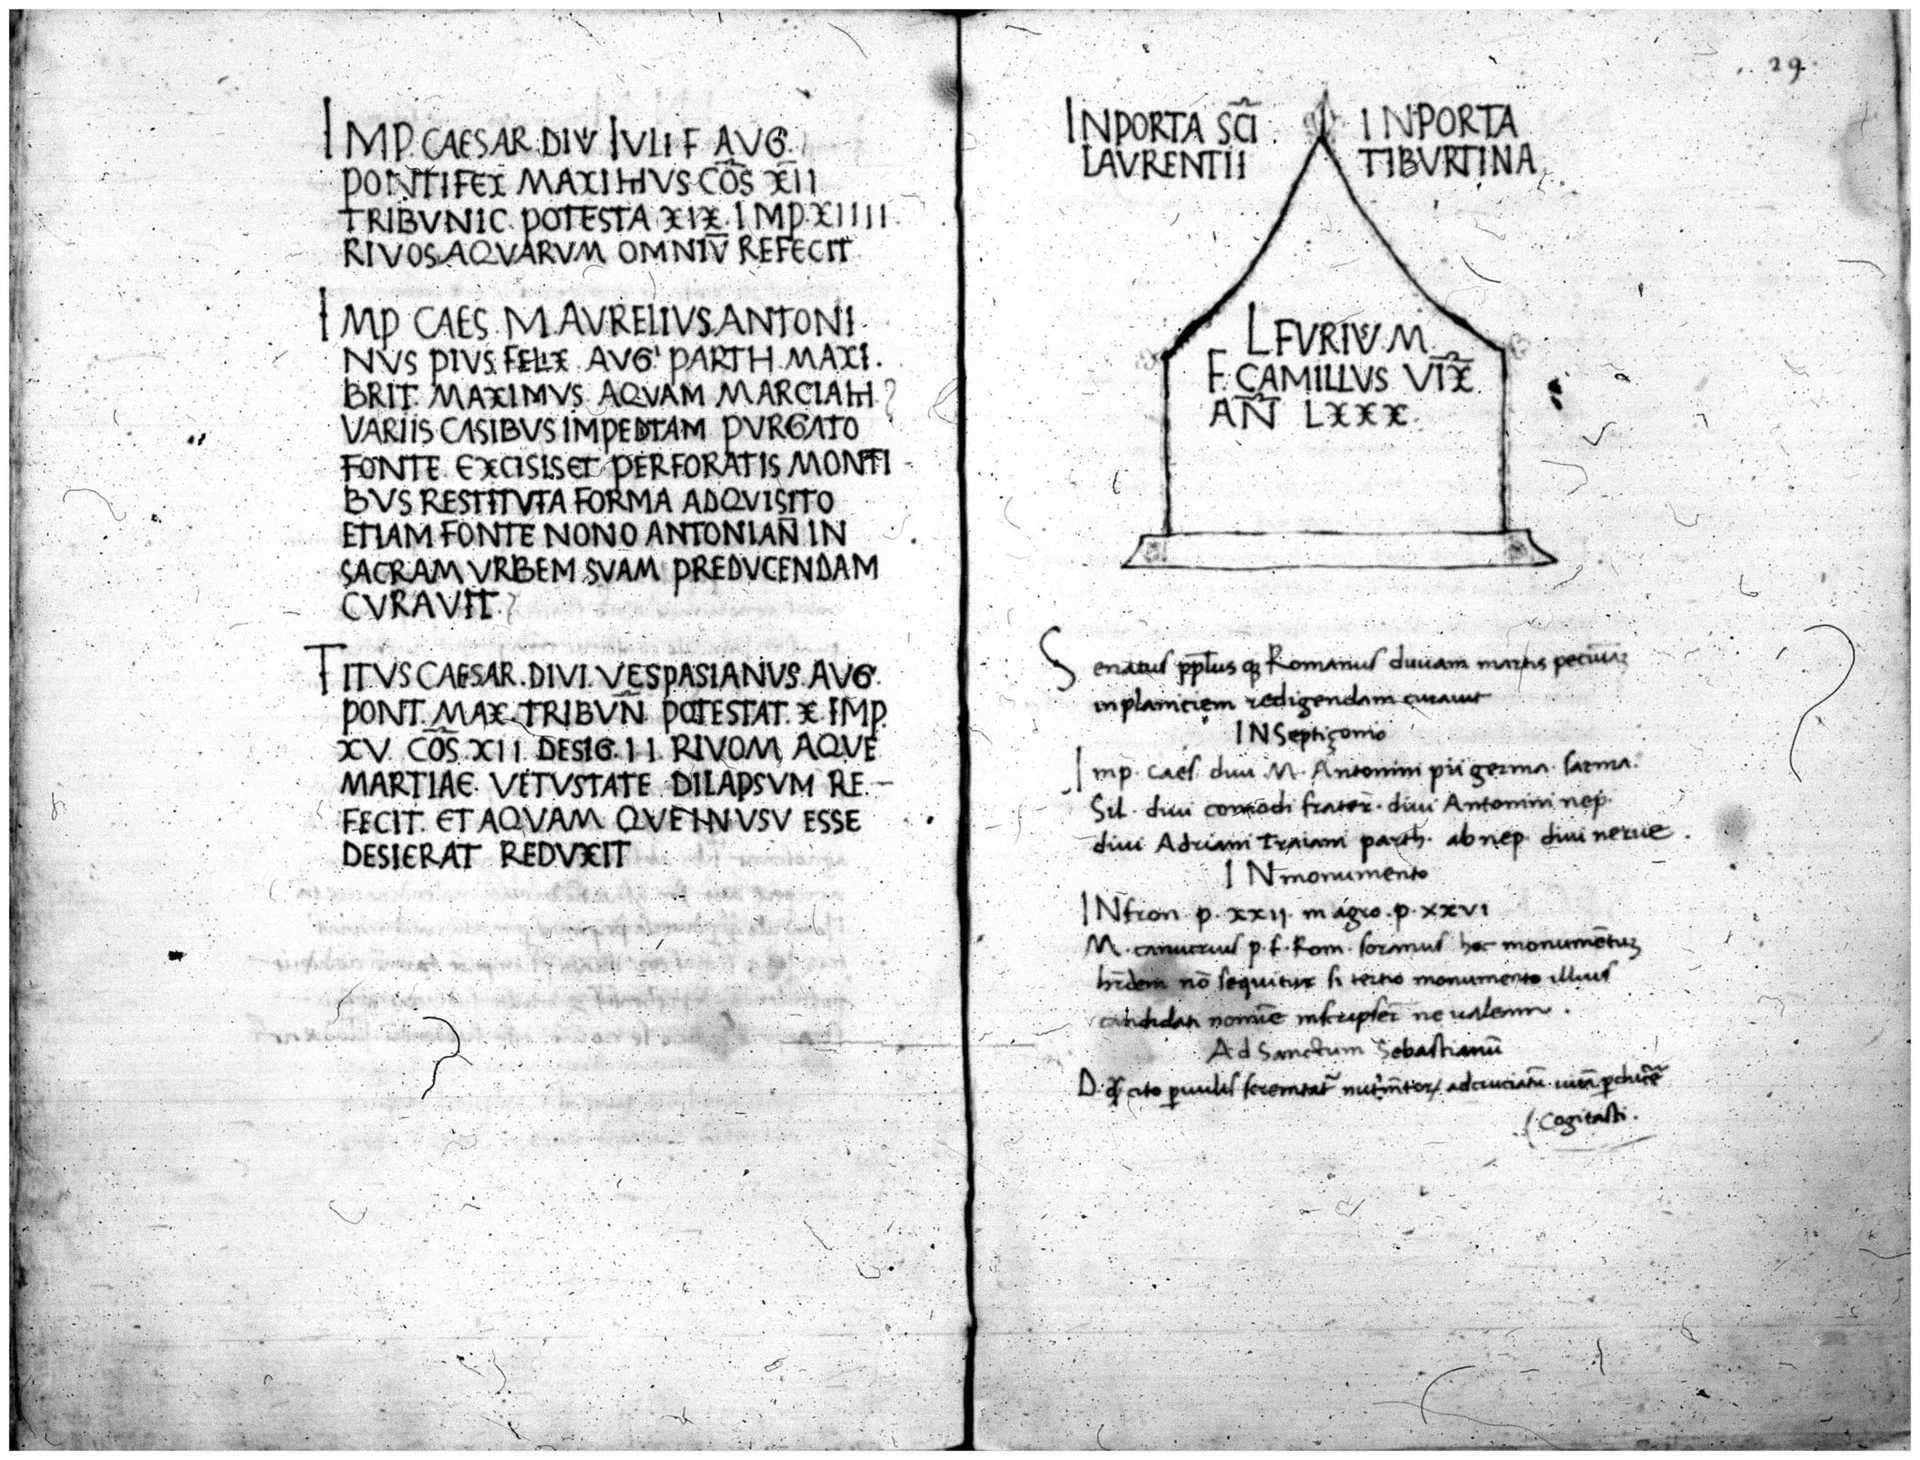 IMP. CAESAR. DIVI IVLI F AVG.
PONTIFEX MAXIMVS COS̄ XII
TRIBVNIC. POTESTA XIX. IMP. XIIII
RIVOS AQVARVM OMNIV̄ REFECIT
IMP CAES. M. AVRELIVS. ANTONI
NVS PIVS. FELIX. AVG' PARTH. MAXI.
BRIT. MAXIMVS. AQVAM MARCIAM
VARIIS CASIBVS IMPEDTAM PVRGATO
FONTE. EXCISIS ET PERFORATIS MONTI
BVS RESTITVTA FORMA ADQVISITO
ETIAM FONTE NONO ANTONIAN̄ IN
SACRAM VRBEM SVAM PREDVCENDAM
CVRAVIT.
TITVS CAESAR. DIVI. VESPASIANVS. AVG.
PONT. MAX. TRIBVN̄. POTESTAT. X. IMP.
XV. COS̄. XII. DESIG. II. RIVOM AQVE
MARTIAE. VETVSTATE DILAPSVM RE-
FECIT. ET AQVAM QVE IN VSV ESSE
DESIERAT REDVXIT
29
INPORTA SCĪ
LAVRENTII
INPORTA
TIBVRTINA
L FVRIVM
F. CAMILLVS VIX̄
AN̄ LXXX.
Senatus pp̄lus qȝ Romanus martis
inplaniciem redigendam curavit
IN Septiçonio
Imp. caes. divi. M. Antonini pii germa. sarma.
Sil. divi comodi frater. divi Antonini nep.
divi Adriani Traiani parth. abnep. divi nerve.
IN monumento
IN fron p. xxii. in agro. p. xxvi
M. p. f. Rom. soranus hoc monumētuȝ
nō sequitur si tertio monumento illius
candidati nomīe ne valeam.
Ad Sanctum Sebastianū
D. cito
Cogitasti.